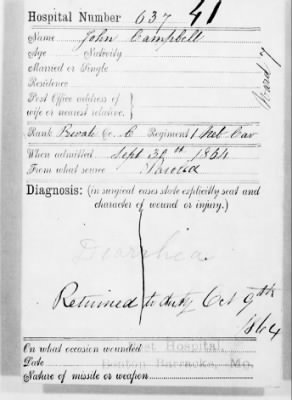 Hospital Number 637 41
Name John Campbell
Age Nativity
Married or Single
Residence
Post Office address of
wife or nearest relative.
Ward 7
Rank Private Co. C Regiment 1 Neb Cav
When admitted Sept 30th 1864
From what source
Diagnosis: (in surgical cases state explicitly seat and
character of wound or injury.)
Diarrhea
Returned to duty Oct 9th
1864
On what occasion wounded Post Hospital,
Date Benton Barracks, Mo.
Nature of missile or weapon